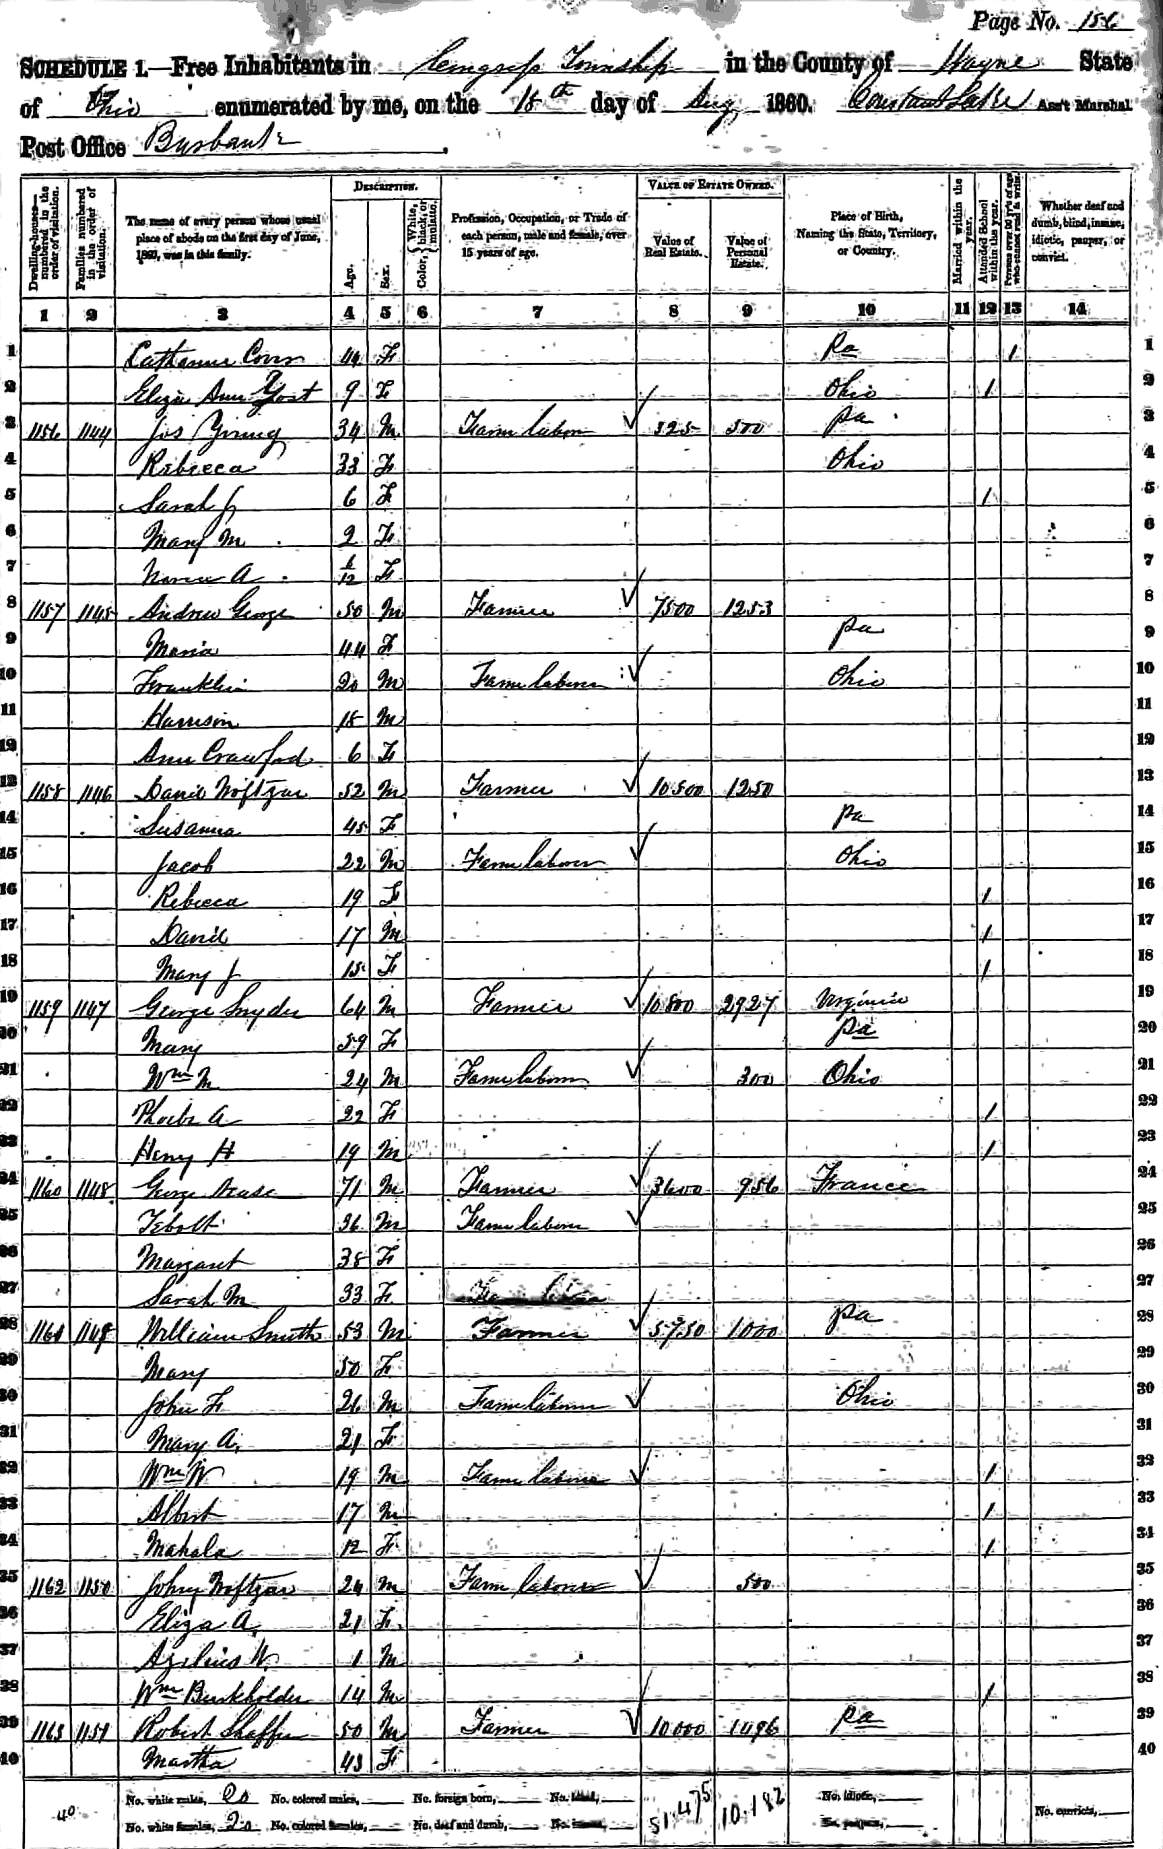 Page No. 156
SCHEDULE 1.—Free Inhabitants in Congress Township in the County of Wayne State
of Ohio enumerated by me, on the 18th day of Aug 1860. Constant Lake Ass't Marshal
Post Office Burbank.
Dwelling-houses—numbered in the order of visitation.
Families numbered in the order of visitation.
The name of every person whose usual place of abode on the first day of June, 1860, was in this family.
DESCRIPTION.
Age.
Sex.
Color, White, black, or mulatto.
Profession, Occupation, or Trade of each person, male and female, over 15 years of age.
VALUE OF ESTATE OWNED.
Value of Real Estate.
Value of Personal Estate.
Place of Birth, Naming the State, Territory, or Country.
Married within the year.
Attended School within the year.
Persons over 20 y'rs of age who cannot read & write.
Whether deaf and dumb, blind, insane, idiotic, pauper, or convict.
1 2 3 4 5 6 7 8 9 10 11 12 13 14
1 Catharine 44 F Pa / 1
2 Eliza Ann Yost 9 F Ohio / 2
3 1156 1144 Jos Young 34 M Farm labor 325 500 Pa 3
4 Rebecca 33 F Ohio 4
5 Sarah J 6 F / 5
6 Mary M 2 F 6
7 A /12 F 7
8 1157 1145 Andrew George 50 M Farmer 7500 1253 8
9 Maria 44 F Pa 9
10 Franklin 20 M Farm laborer Ohio 10
11 Harrison 18 M 11
12 Ann Crawford 6 F 12
13 1158 1146 David Noftzar 52 M Farmer 10500 1250 13
14 Susanna 45 F Pa 14
15 Jacob 22 M Farm laborer Ohio 15
16 Rebecca 19 F / 16
17 David 17 M / 17
18 Mary J 15 F / 18
19 1159 1147 George Snyder 64 M Farmer 10800 2927 Virginia 19
20 Mary 59 F Pa 20
21 Wm M 24 M Farm laborer 300 Ohio 21
22 Phoebe A 22 F / 22
23 Henry H 19 M / 23
24 1160 1148 George 71 M Farmer 3600 956 France 24
25 Tebolt 36 M Farm laborer 25
26 Margaret 38 F 26
27 Sarah M 33 F 27
28 1161 1149 William Smith 53 M Farmer 5750 1000 Pa 28
29 Mary 50 F 29
30 John F 26 M Farm laborer Ohio 30
31 Mary A. 21 F 31
32 Wm W 19 M Farm laborer / 32
33 Albert 17 M / 33
34 Mahala 12 F / 34
35 1162 1150 Johny Noftzar 24 M Farm laborer 500 35
36 Eliza A. 21 F 36
37 W. 1 M 37
38 Wm Burkholder 14 M / 38
39 1163 1151 Robert Shaffer 50 M Farmer 10000 1496 Pa 39
40 Martha 43 F 40
40 No. white males, 20 No. colored males, No. foreign born, No. blind, 51.475 10.182 No. idiotic,
No. white females, 20 No. colored females, No. deaf and dumb, No. insane, No. paupers, No. convicts,